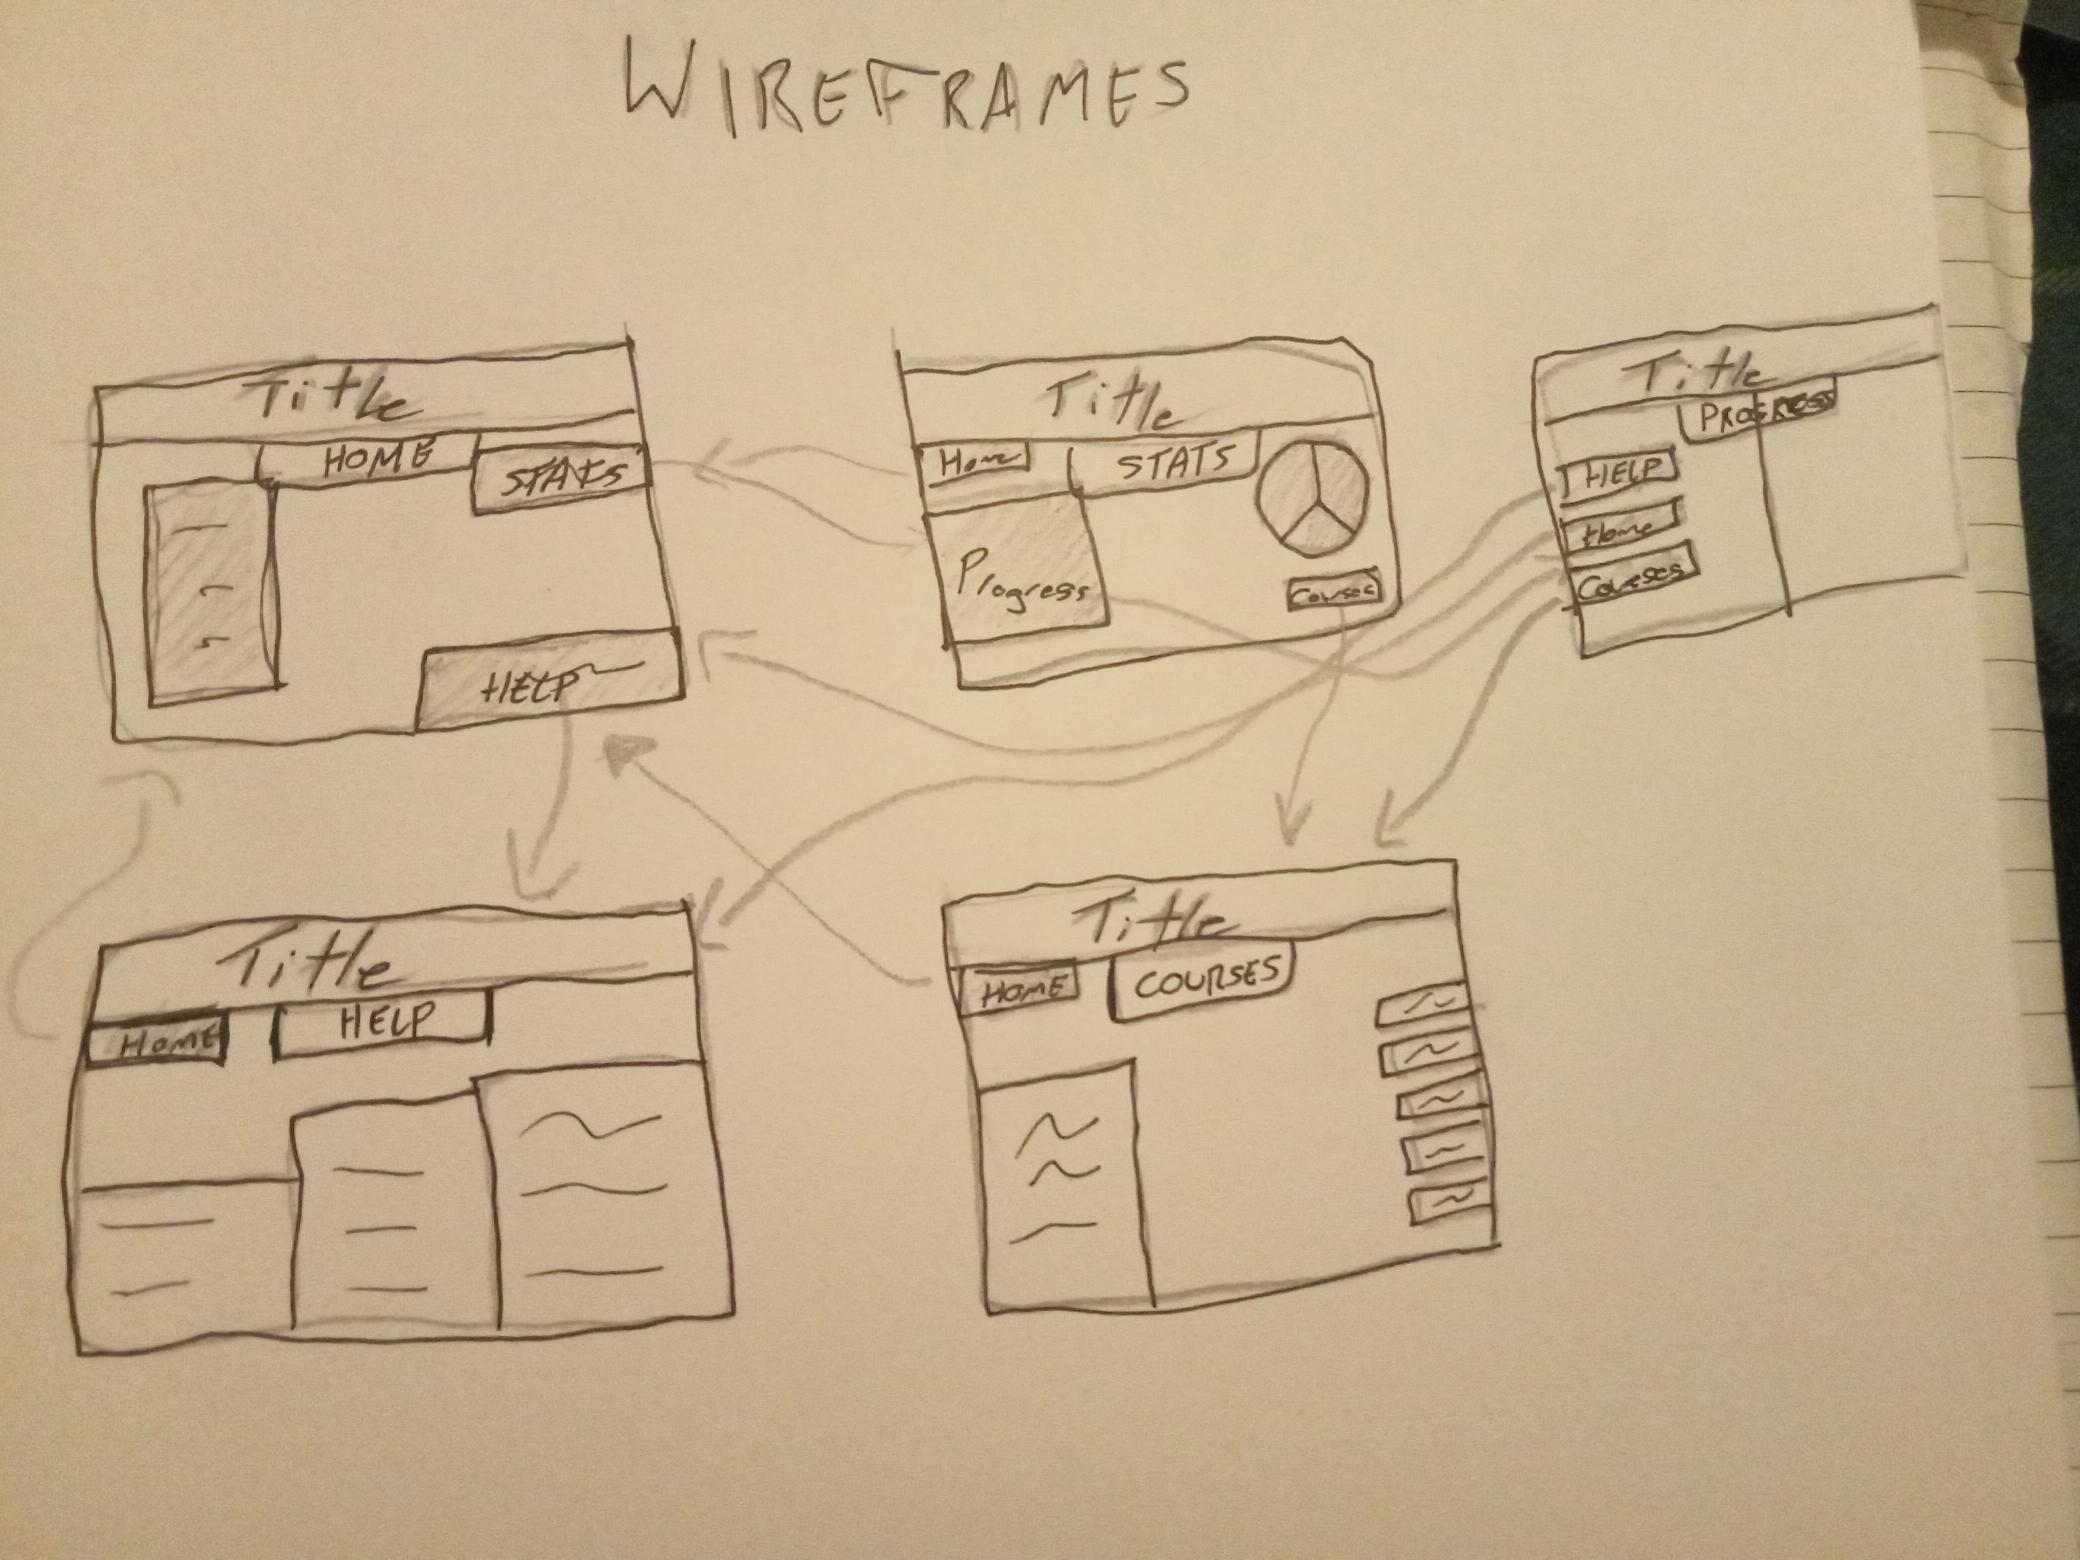 WIREFRAMES
Title
HOME
STATS
HELP
Title
Home
STATS
Progress
Courses
Title
PROGRESS
HELP
Home
Courses
Title
Home
HELP
Title
HOME
COURSES